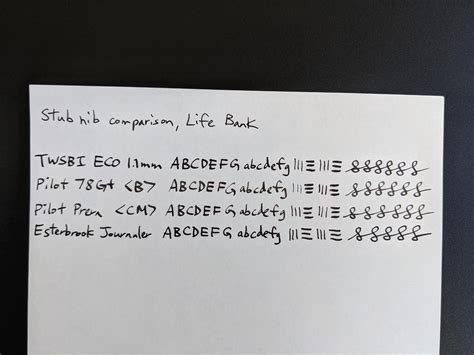 Stub nib comparison, Life Bank
TWSBI ECO 1.1mm ABCDEFG abcdefg ||| ☰ ||| ☰ 888888
Pilot 78G+ <B> ABCDEFG abcdefg ||| ☰ ||| ☰ 888888
Pilot Prera <CM> ABCDEFG abcdefg ||| ☰ ||| ☰ 888888
Esterbrook Journaler ABCDEFG abcdefg ||| ☰ ||| ☰ 888888